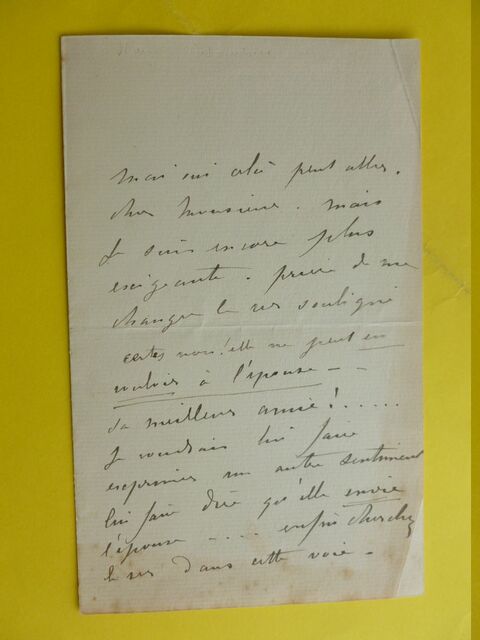 Mais oui cela peut aller,
cher Monsieur. Mais
je suis encore plus
exigeante. prière de me
changer le vers souligné
certes non! elle ne peut en
vouloir à l'épouse - -
sa meilleure amie! .....
Je voudrais lui faire
exprimer un autre sentiment
lui faire dire qu'elle envie
l'épouse - .... enfin cherchez
le vers dans cette voie -